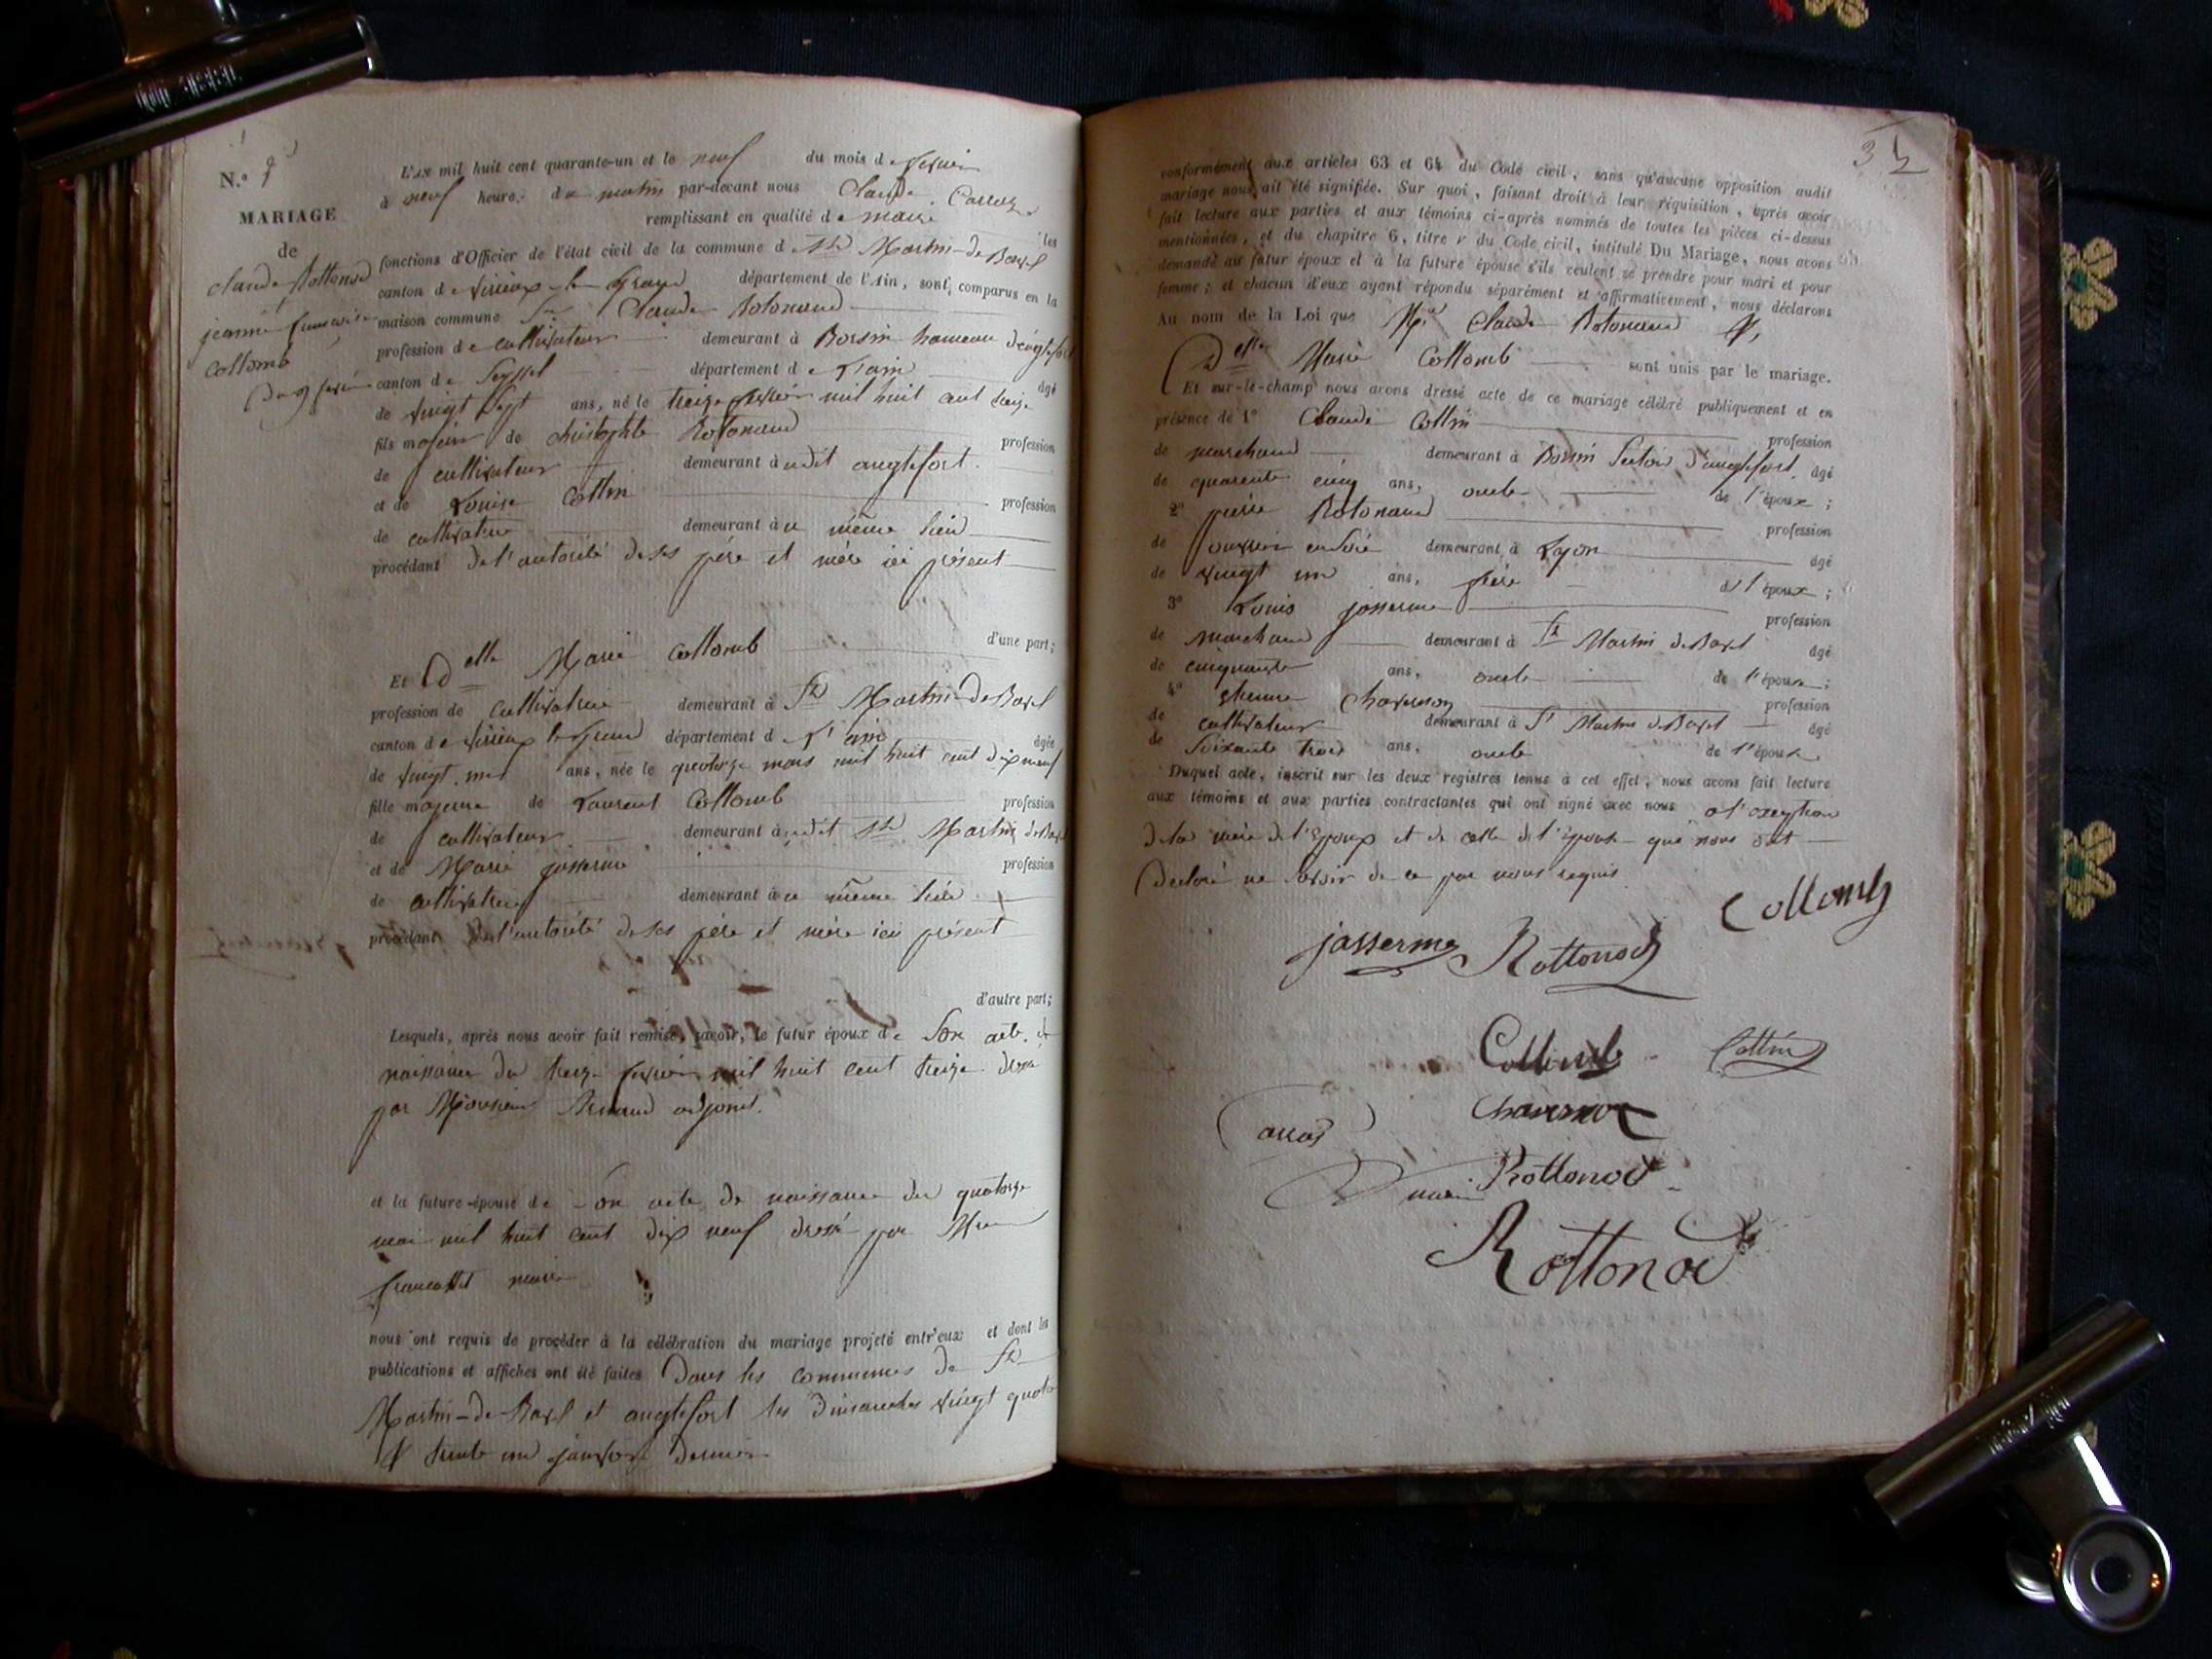 N.º 9
MARIAGE
de
claude Rottonod
jeanne francoise
Collomb
Du 9 fevrier
L'AN mil huit cent quarante-un et le neuf du mois de fevrier
à neuf heure du matin par-devant nous Claude Carraz
remplissant en qualité de maire les
fonctions d'Officier de l'état civil de la commune d St Martin-de Bavel
canton de Virieux le Grand département de l'Ain, sont comparus en la
maison commune Sr Claude Rotonand
profession de cultivateur demeurant à Boursin hameau d'anglefort
canton de Seyssel département de L'ain âgé
de vingt sept ans, né le treize fevrier mil huit cent treize
fils majeur de christophle Rotonand profession
de cultivateur demeurant à udit anglefort.
et de Louise Cottin profession
de cultivatrice demeurant à u même lieu
procédant de l'autorité de ses père et mère ici présent
d'une part;
Et Delle Marie Collomb
profession de cultivatrice demeurant à St Martin-de Bavel
canton de Virieux le grand département d L'ain âgée
de vingt un ans, née le quatorze mars mil huit cent dix neuf
fille majeure de Laurent Collomb profession
de cultivateur demeurant à udit St Martin de Bavel
et de Marie josserme profession
de cultivatrice demeurant à u même lieu
procédant de l'autorité de ses père et mère ici présent
d'autre part;
Lesquels, après nous avoir fait remise, savoir, le futur époux de Son acte de
naissance du treize fevrier mil huit cent treize dressé
par Monsieur Arnaud adjoint.
et la future-épouse de Son acte de naissance du quatorze
mai mil huit cent dix neuf dressé par Mr
francottet maire
nous ont requis de procéder à la célébration du mariage projeté entr'eux et dont les
publications et affiches ont été faites Dans les communes de St
Martin-de-Bavel et anglefort les dimanches vingt quatre
& trente un janvier dernier
3
conformément aux articles 63 et 64 du Code civil, sans qu'aucune opposition audit
mariage nous ait été signifiée. Sur quoi, faisant droit à leur réquisition, après avoir
fait lecture aux parties et aux témoins ci-après nommés de toutes les pièces ci-dessus
mentionnées, et du chapitre 6, titre v du Code civil, intitulé Du Mariage, nous avons
demandé au futur époux et à la future épouse s'ils veulent se prendre pour mari et pour
femme; et chacun d'eux ayant répondu séparément et affirmativement, nous déclarons
Au nom de la Loi que Mr Claude Rotonand &
Delle Marie Collomb sont unis par le mariage.
Et sur-le-champ nous avons dressé acte de ce mariage célébré publiquement et en
présence de 1º Claude Cottin profession
de marchand demeurant à Boursin Section d'anglefort âgé
de quarente cinq ans, oncle de l'époux;
2º pierre Rotonand profession
de ouvrier en soie demeurant à Lyon âgé
de vingt un ans, frère de l'époux;
3º Louis josserme profession
de marchand demeurant à St Martin de Bavel âgé
de cinquante ans, oncle de l'épouse;
4º etienne Charveron profession
de cultivateur demeurant à St Martin de Bavel âgé
de Soixante trois ans, oncle de l'épouse
Duquel acte, inscrit sur les deux registres tenus à cet effet, nous avons fait lecture
aux témoins et aux parties contractantes qui ont signé avec nous a l'exeption
de la mère de l'Epoux et de celle de l'épouse que nous ont
Declaré ne Savoir de ce par nous requis
Collomb
josserme Rottonod
Collomb Cottin
Charveron
Carraz
maire Rottonod
Rottonod